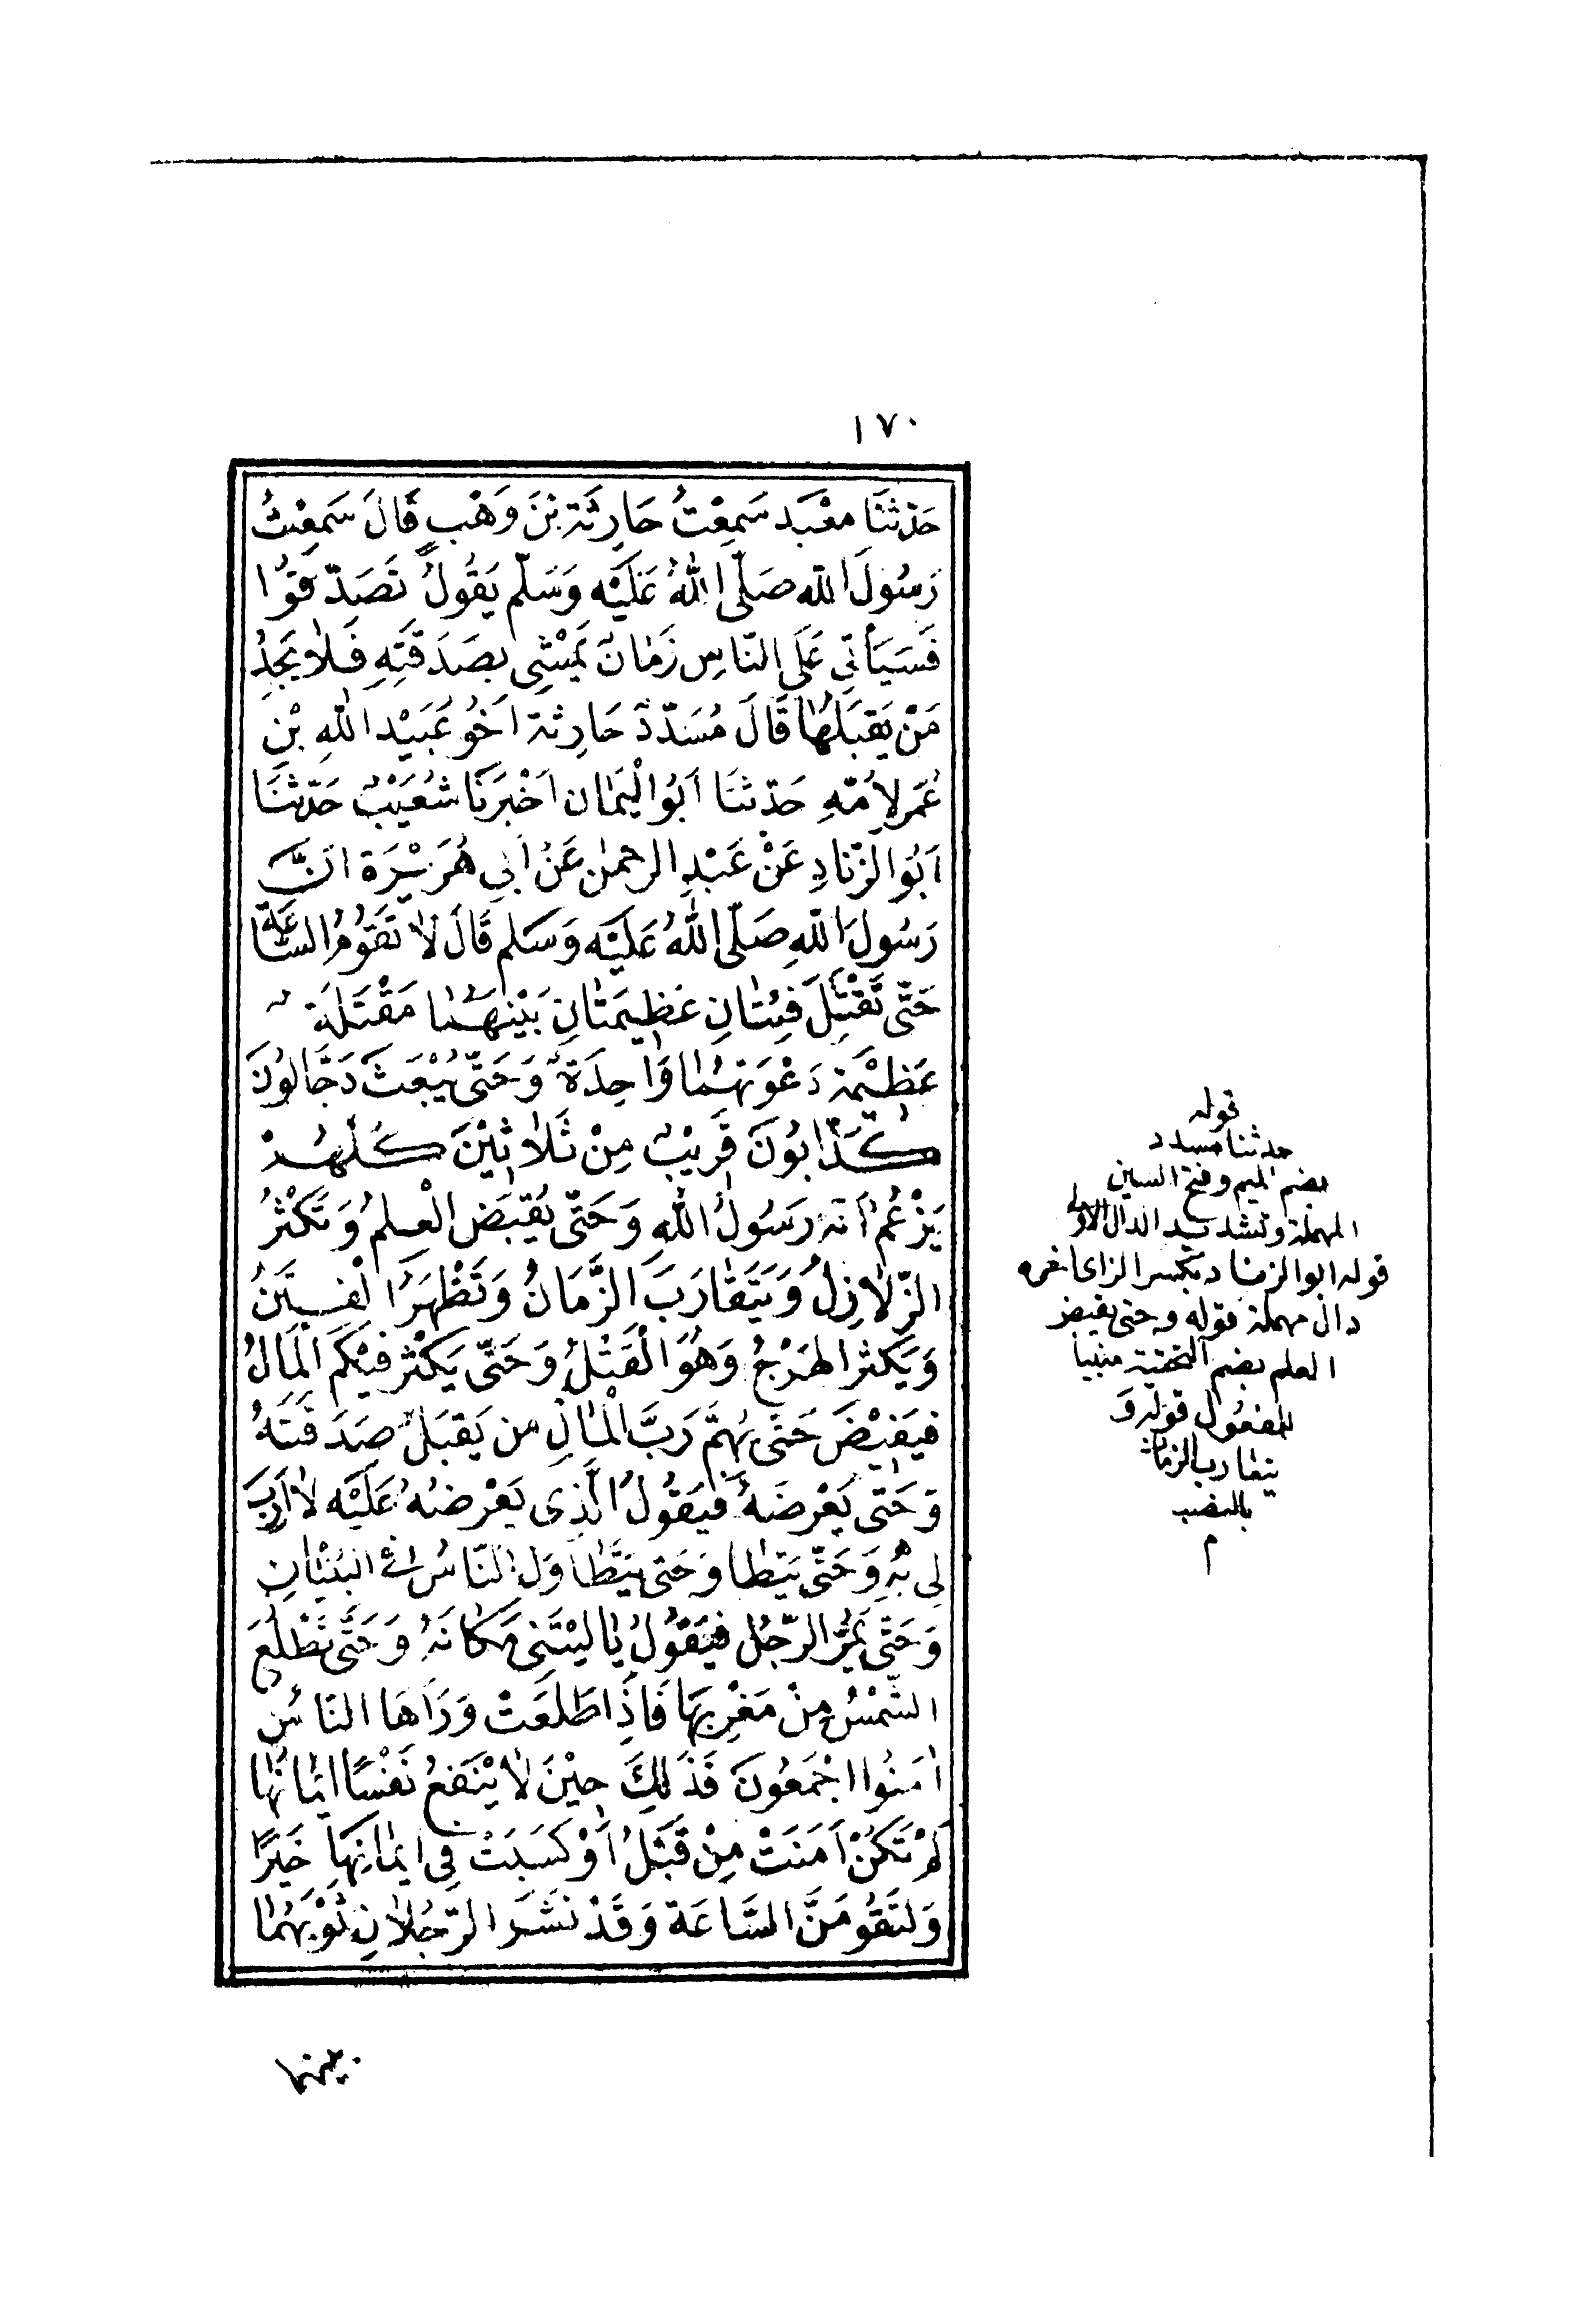 ١٧٠
حَدّثنَا مَعْبَد سَمِعْتُ حَارِثَة بْنَ وَهْبٍ قَالَ سَمِعْتُ
رَسُولَ اللّهِ صَلّى اللّٰهُ عَلَيْه وَسَلّم يَقُولُ تَصَدّقوُا
فَسَيَأتِي عَلَى النّاسِ زَمَانٌ يَمْشِى بِصَدَقَتِهِ فَلَا يَجِدُ
مَنْ يَقْبَلُهَا قَالَ مُسَدّدٌ حَارِثة اَخُو عُبَيْدِ اللّٰهِ بْنِ
عُمَر لِأمّهِ حَدّثنَا اَبُو الْيَمَان اَخْبَرَنَا شُعَيْبٌ حَدّثنَا
اَبُو الزّنَادِ عَنْ عَبْدِ الرحمٰن عَنْ اَبِي هُرَيْرَة اَنَّ
رَسُولَ اللّٰهِ صَلّى اللّٰهُ عَلَيْه وَسَلم قَالَ لَا تَقُومُ السَّاعَة
حَتّى تَقْتَتِلَ فِئتَانِ عَظِيمَتَانِ بَيْنهمَا مَقْتَلَةٌ
عَظِيْمة دَعْوَتهُمَا وَاحِدَةٌ وَحَتّى يُبْعَثَ دَجَّالُونَ
كَذّابُونَ قَرِيْبٌ مِنْ ثَلَاثِيْنَ كُلّهُمْ
يَزْعُمُ اَنّهُ رَسُولُ اللّٰهِ وَحَتّى يُقْبَضَ الْعِلمُ وَتَكْثُرُ
الزّلَازِلُ وَيَتَقَارَبَ الزَّمَانُ وَتَظْهَرَ الْفِتَنُ
وَيَكْثُر الهَرْجُ وَهُوَ الْقَتْلُ وَحَتّى يَكْثُر فِيْكُم الْمَالُ
فيَفِيْضَ حَتّى يُهِمَّ رَبَّ الْمَالِ من يَقبَلُ صَدَقَتَهُ
وَحَتّى يَعْرِضَهُ فَيَقُولُ الّذِى يَعْرِضُهُ عَلَيْه لَا اَرَبَ
لِى بهِ وَحَتّى يتطا وَحَتى يَتَطَاوَل النّاسُ فِى البُنْيَانِ
وَحَتّى يَمُرَّ الرّجُل فيَقُولُ يَا لَيْتَنِى مَكَانَهُ وَحَتّى تَطْلُعَ
الشّمْسُ مِنْ مَغْرِبِهَا فَاذَا طَلَعَتْ وَرَاٰهَا النَاسُ
اٰمَنُوا اجْمَعُونَ فَذَلِكَ حِيْنَ لَا يَنْفَعُ نَفْسًا ايْمَانُهَا
لَمْ تَكُنْ اٰمَنَتْ مِنْ قَبْلُ اَوْ كَسَبَتْ فِى ايْمَانِهَا خَيْرًا
وَلَتَقُومَنَّ السَّاعَة وَقَدْ نَشَرَ الرّجُلَانِ ثَوْبَهُمَا
بينهما
قوله
حدثنا مسدد
بضم الميم وفتح السين
المهملة وتشديد الدال الاولى
قوله ابو الزناد بكسر الزاى اخره
دال مهملة قوله وحتى يقبض
العلم بضم التحتية مبنيا
للمفعول قوله و
يتقارب الزمان
بالنصب
م